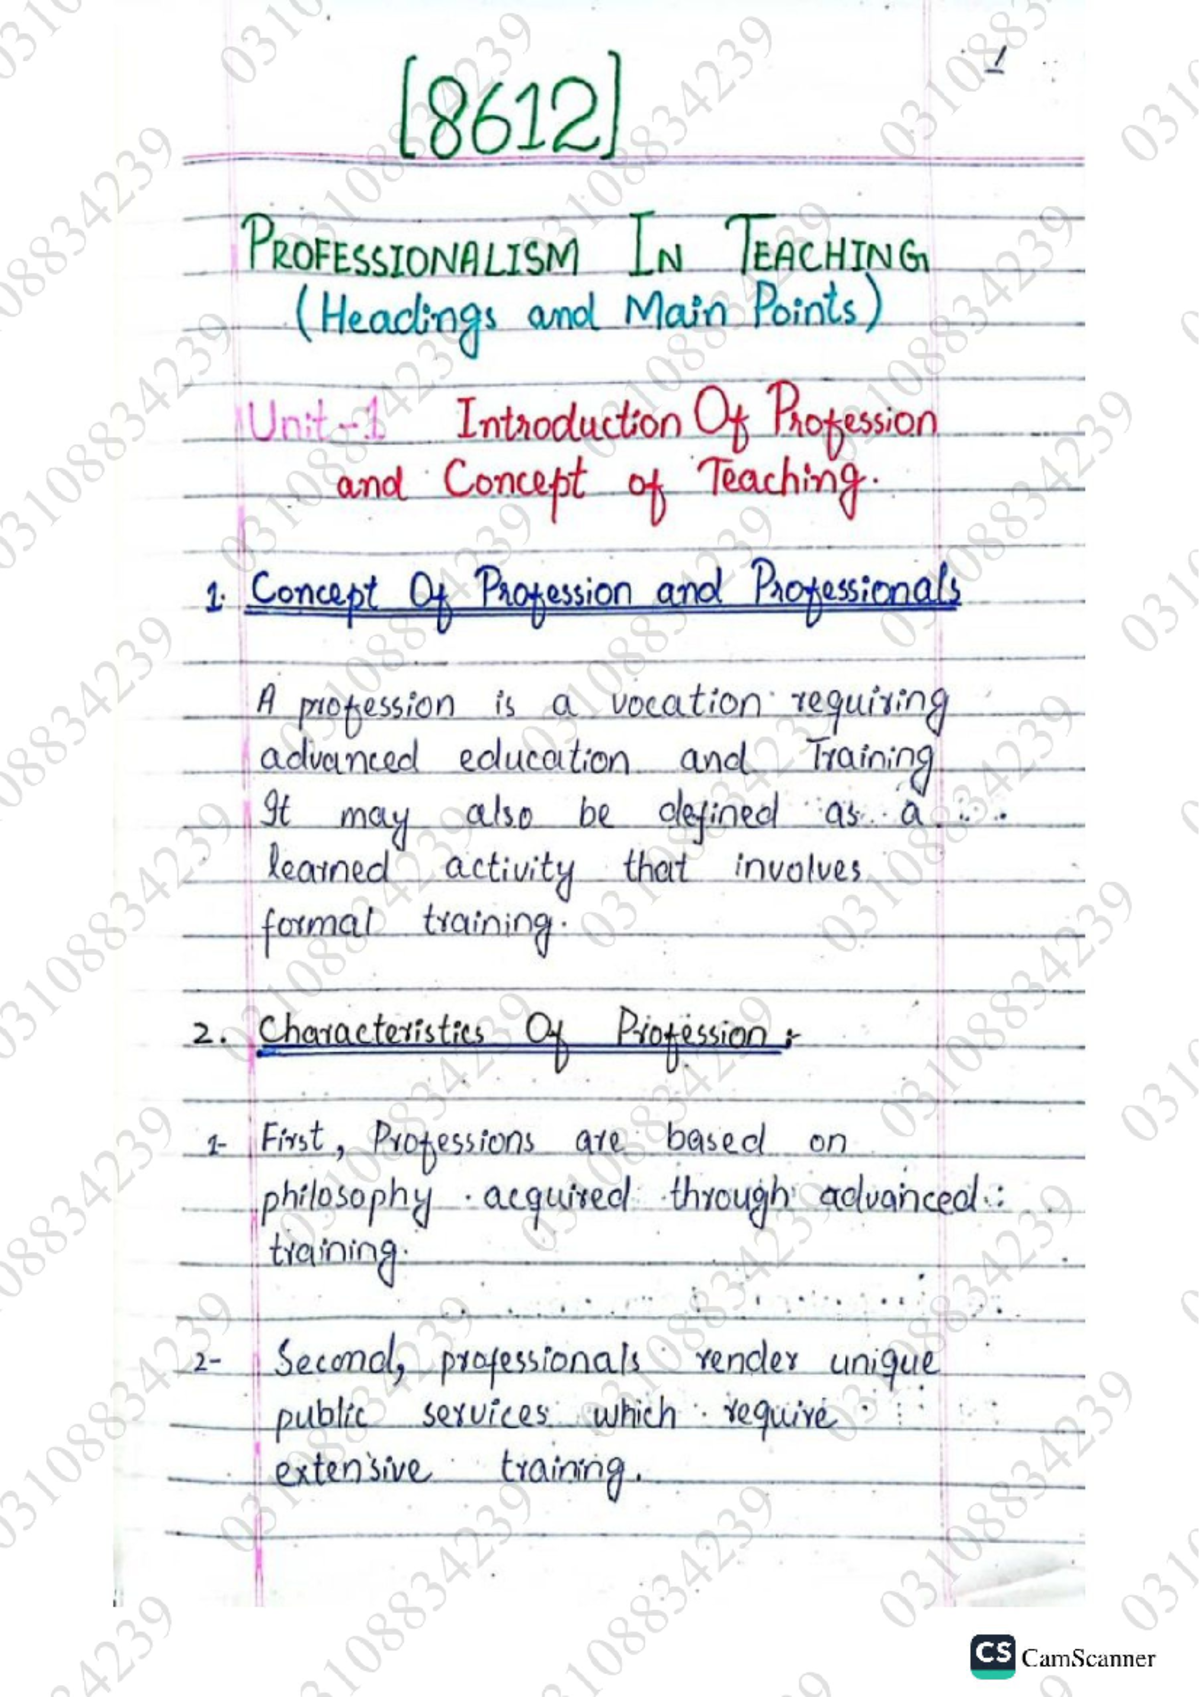 1
[8612]
PROFESSIONALISM IN TEACHING
(Headings and Main Points)
Unit-1 Introduction Of Profession
and Concept of Teaching.
1. Concept Of Profession and Professionals
A profession is a vocation requiring
advanced education and Training
It may also be defined as a
learned activity that involves
formal training.
2. Characteristics Of Profession:-
1- First, Professions are based on
philosophy acquired through advanced
training.
2- Second, professionals render unique
public services which require
extensive training.
CS CamScanner
03108834239